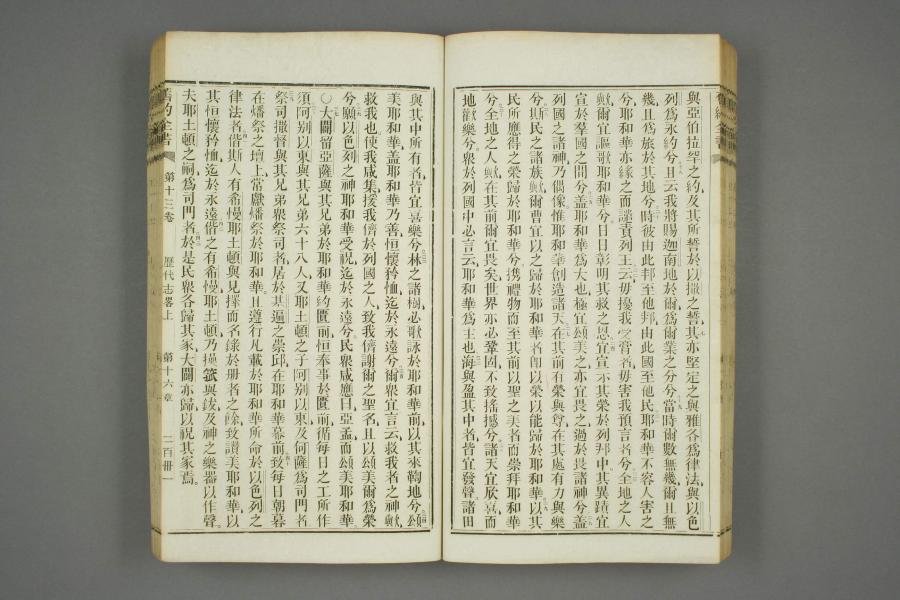 與亞伯拉罕之約及其所誓於以撒之誓其亦堅定之與雅各爲律法與以色
列爲永約兮且云我將賜迦南地於爾爲爾業之分兮當時爾數無幾爾且無
幾且爲旅於其地兮時彼由此邦至他邦由此國至他民耶和華不容人害之
兮耶和華亦緣之而譴責列王云毋擾我受膏者毋害我預言者兮全地之人
歟爾宜謳歌耶和華兮日日彰明其救之恩宜宣示其榮於列邦中其異蹟宜
宣於羣國之間兮葢耶和華爲大也極宜頌美之亦宜畏之過於畏諸神兮葢
列國之諸神乃偶像惟耶和華創造諸天在其前有榮與尊在其處有力與樂
兮其民之諸族歟爾曹宜以之歸於耶和華者卽以榮以能歸於耶和華以其
民所應得之榮歸於耶和華兮攜禮物而至其前以聖之美者而崇拜耶和華
兮全地之人歟在其前爾宜畏矣世界亦必鞏固不致搖撼兮諸天宜欣喜而
地歡樂兮衆於列國中必言云耶和華爲王也海與盈其中者皆宜發聲諸田
與其中所有者皆宜喜樂兮林之諸樹必歌詠於耶和華前以其來鞫地兮頌
美耶和華葢耶和華乃善恒懷矜恤迄於永遠兮爾衆宜言云救我者之神歟
救我也使我咸集援我儕於列國之人致我儕謝爾之聖名且以頌美爾爲榮
兮願以色列之神耶和華受祝迄於永遠兮民衆咸應曰亞孟而頌美耶和華
○大闢留亞薩與其兄弟於耶和華約匱前恒奉事於匱前循每日之工所作
須阿別以東與其兄弟六十八人又耶土頓之子阿別以東及何薩爲司門者
祭司撒督與其兄弟衆祭司者居於基遍之崇邱在耶和華幕前致每日朝暮
在燔祭之壇上常獻燔祭於耶和華且遵行凡載於耶和華所命於以色列之
律法者偕斯人有希慢耶土頓與見擇而名錄於册者之餘致讚美耶和華以
其恒懷矜恤迄於永遠偕之有希慢耶土頓乃操號與鈸及神之樂器以作聲
夫耶土頓之嗣爲司門者於是民衆各歸其家大闢亦歸以祝其家焉
舊約全書
第十三卷
歷代志畧上
第十六章
二百卌一